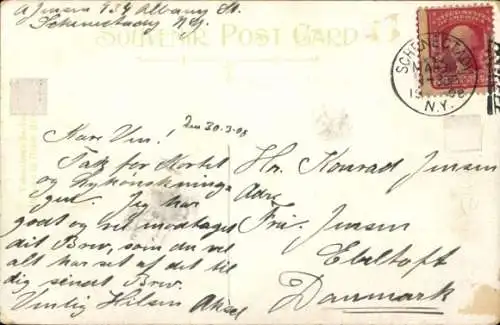 A Jensen 934 Albany St.
Schenectady N.Y.
SOUVENIR POST CARD
UNITED STATES
SCHENECTADY
MAR
1908
N.Y.
Kære Ven! Den 30.3-08
Tak for Kortet
og Lykønskninge
gud. Jeg har
godt og vel modtaget
dit Brev, som du vel
alt har set af det til
dig sendt Brev.
Venlig Hilsen Aksel
Hr. Konrad Jensen
Adr.
Fru Jensen
Ebeltoft
Danmark